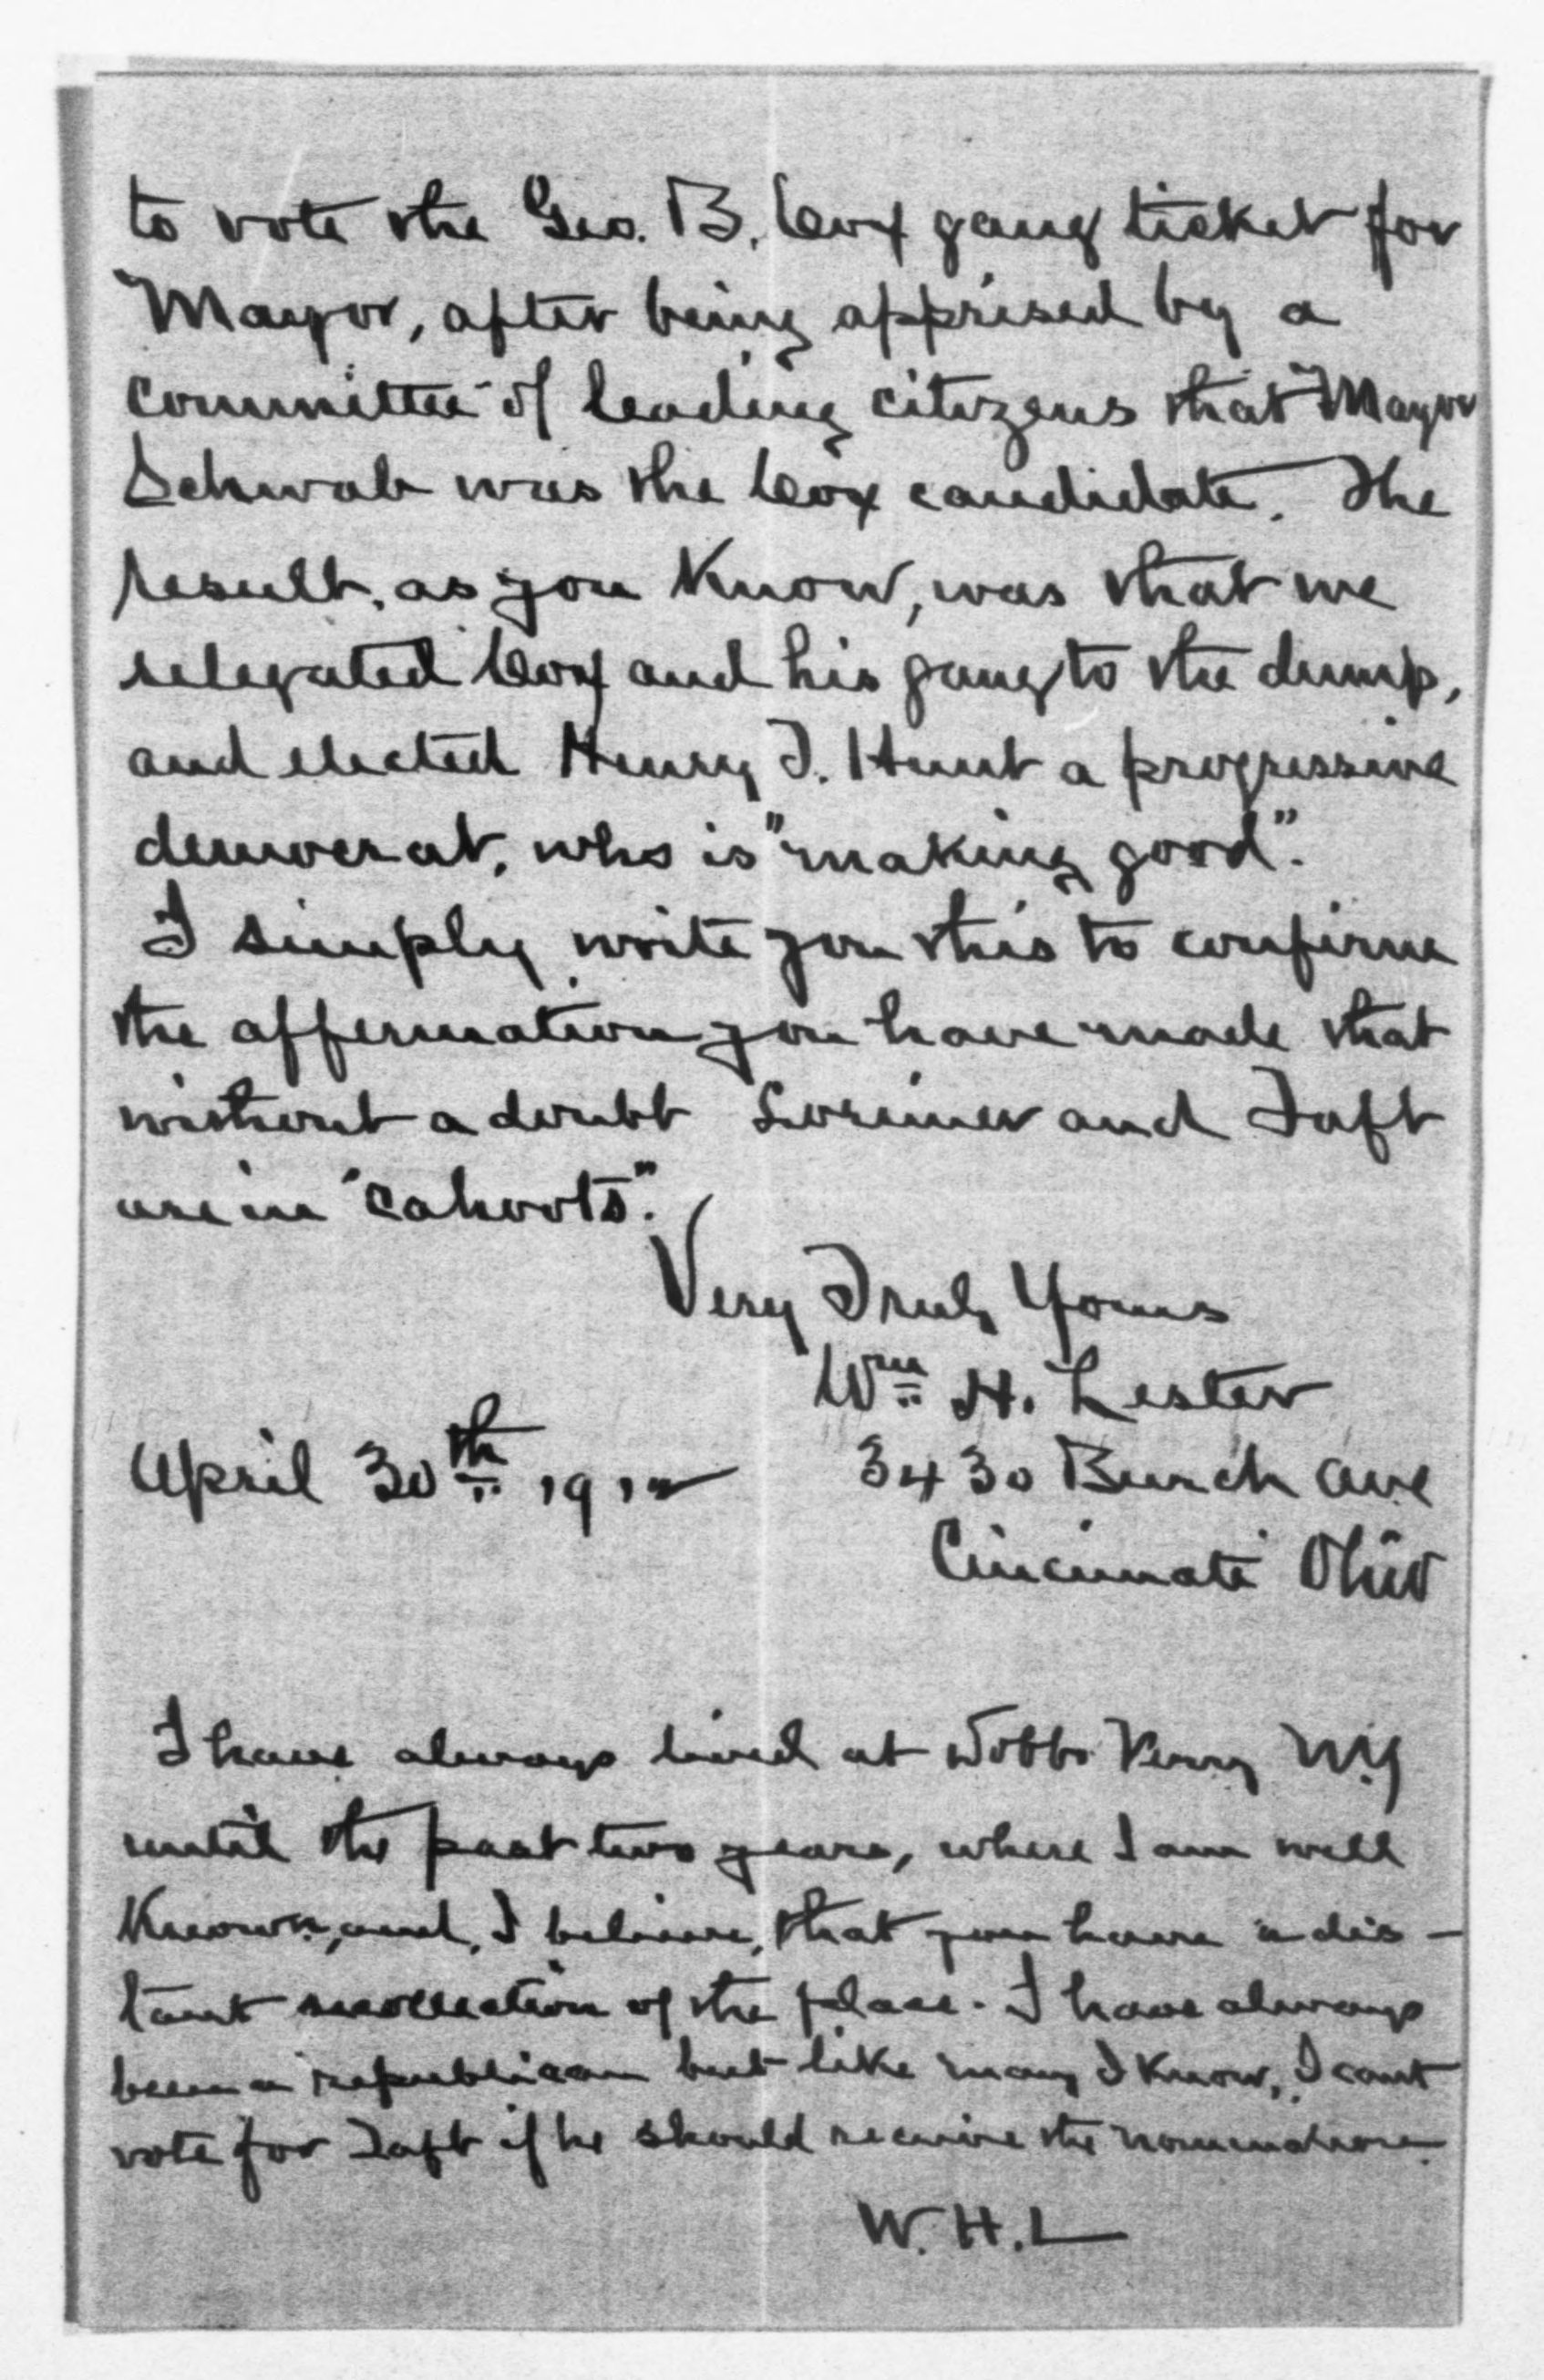 to vote the Geo. B. Cox gang ticket for
Mayor, after being apprised by a
committee of leading citizens that Mayor
Schwab was the Cox candidate. The
result, as you know, was that we
relegated Cox and his gang to the dump,
and elected Henry T. Hunt a progressive
democrat, who is "making good".
I simply write you this to confirm
the affermation you have made that
without a doubt Lorimer and Taft
are in "cahoots".
Very Truly Yours
Wm H. Lester
April 30th 1912
3430 Burch Ave
Cincinnati Ohio
I have always lived at Dobbs Ferry N.Y
until the past two years, where I am well
known, and, I believe, that you have a dis-
tant recollection of the place. I have always
been a republican but like many I know, I cant
vote for Taft if he should receive the nomination.
W. H. L